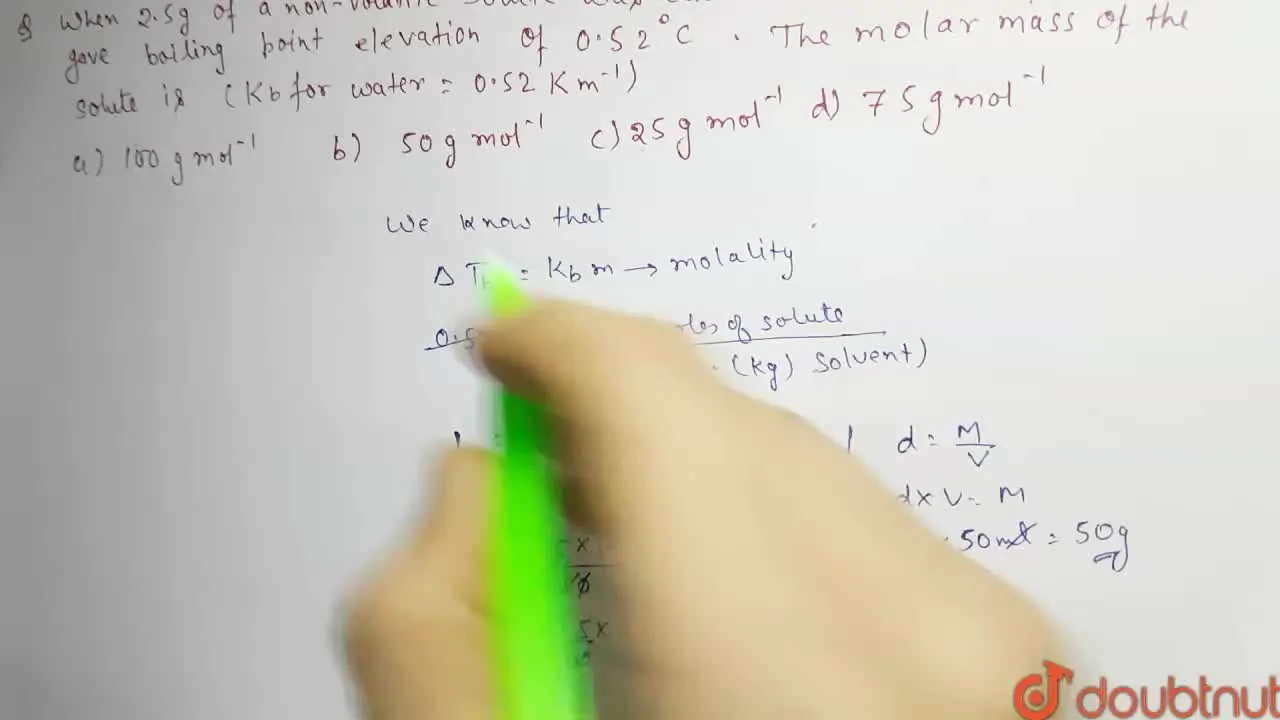 Q when 2.5g of a non-volatile solute was
gave boiling point elevation of 0.52°C . The molar mass of the
solute is (Kb for water = 0.52 K m⁻¹)
a) 100 g mol⁻¹ b) 50g mol⁻¹ c) 25g mol⁻¹ d) 75g mol⁻¹
we know that
Δ Tb = Kb m → molality
of solute
(kg) solvent)
1 = d = M/V
d x V = M
50ml = 50g
doubtnut